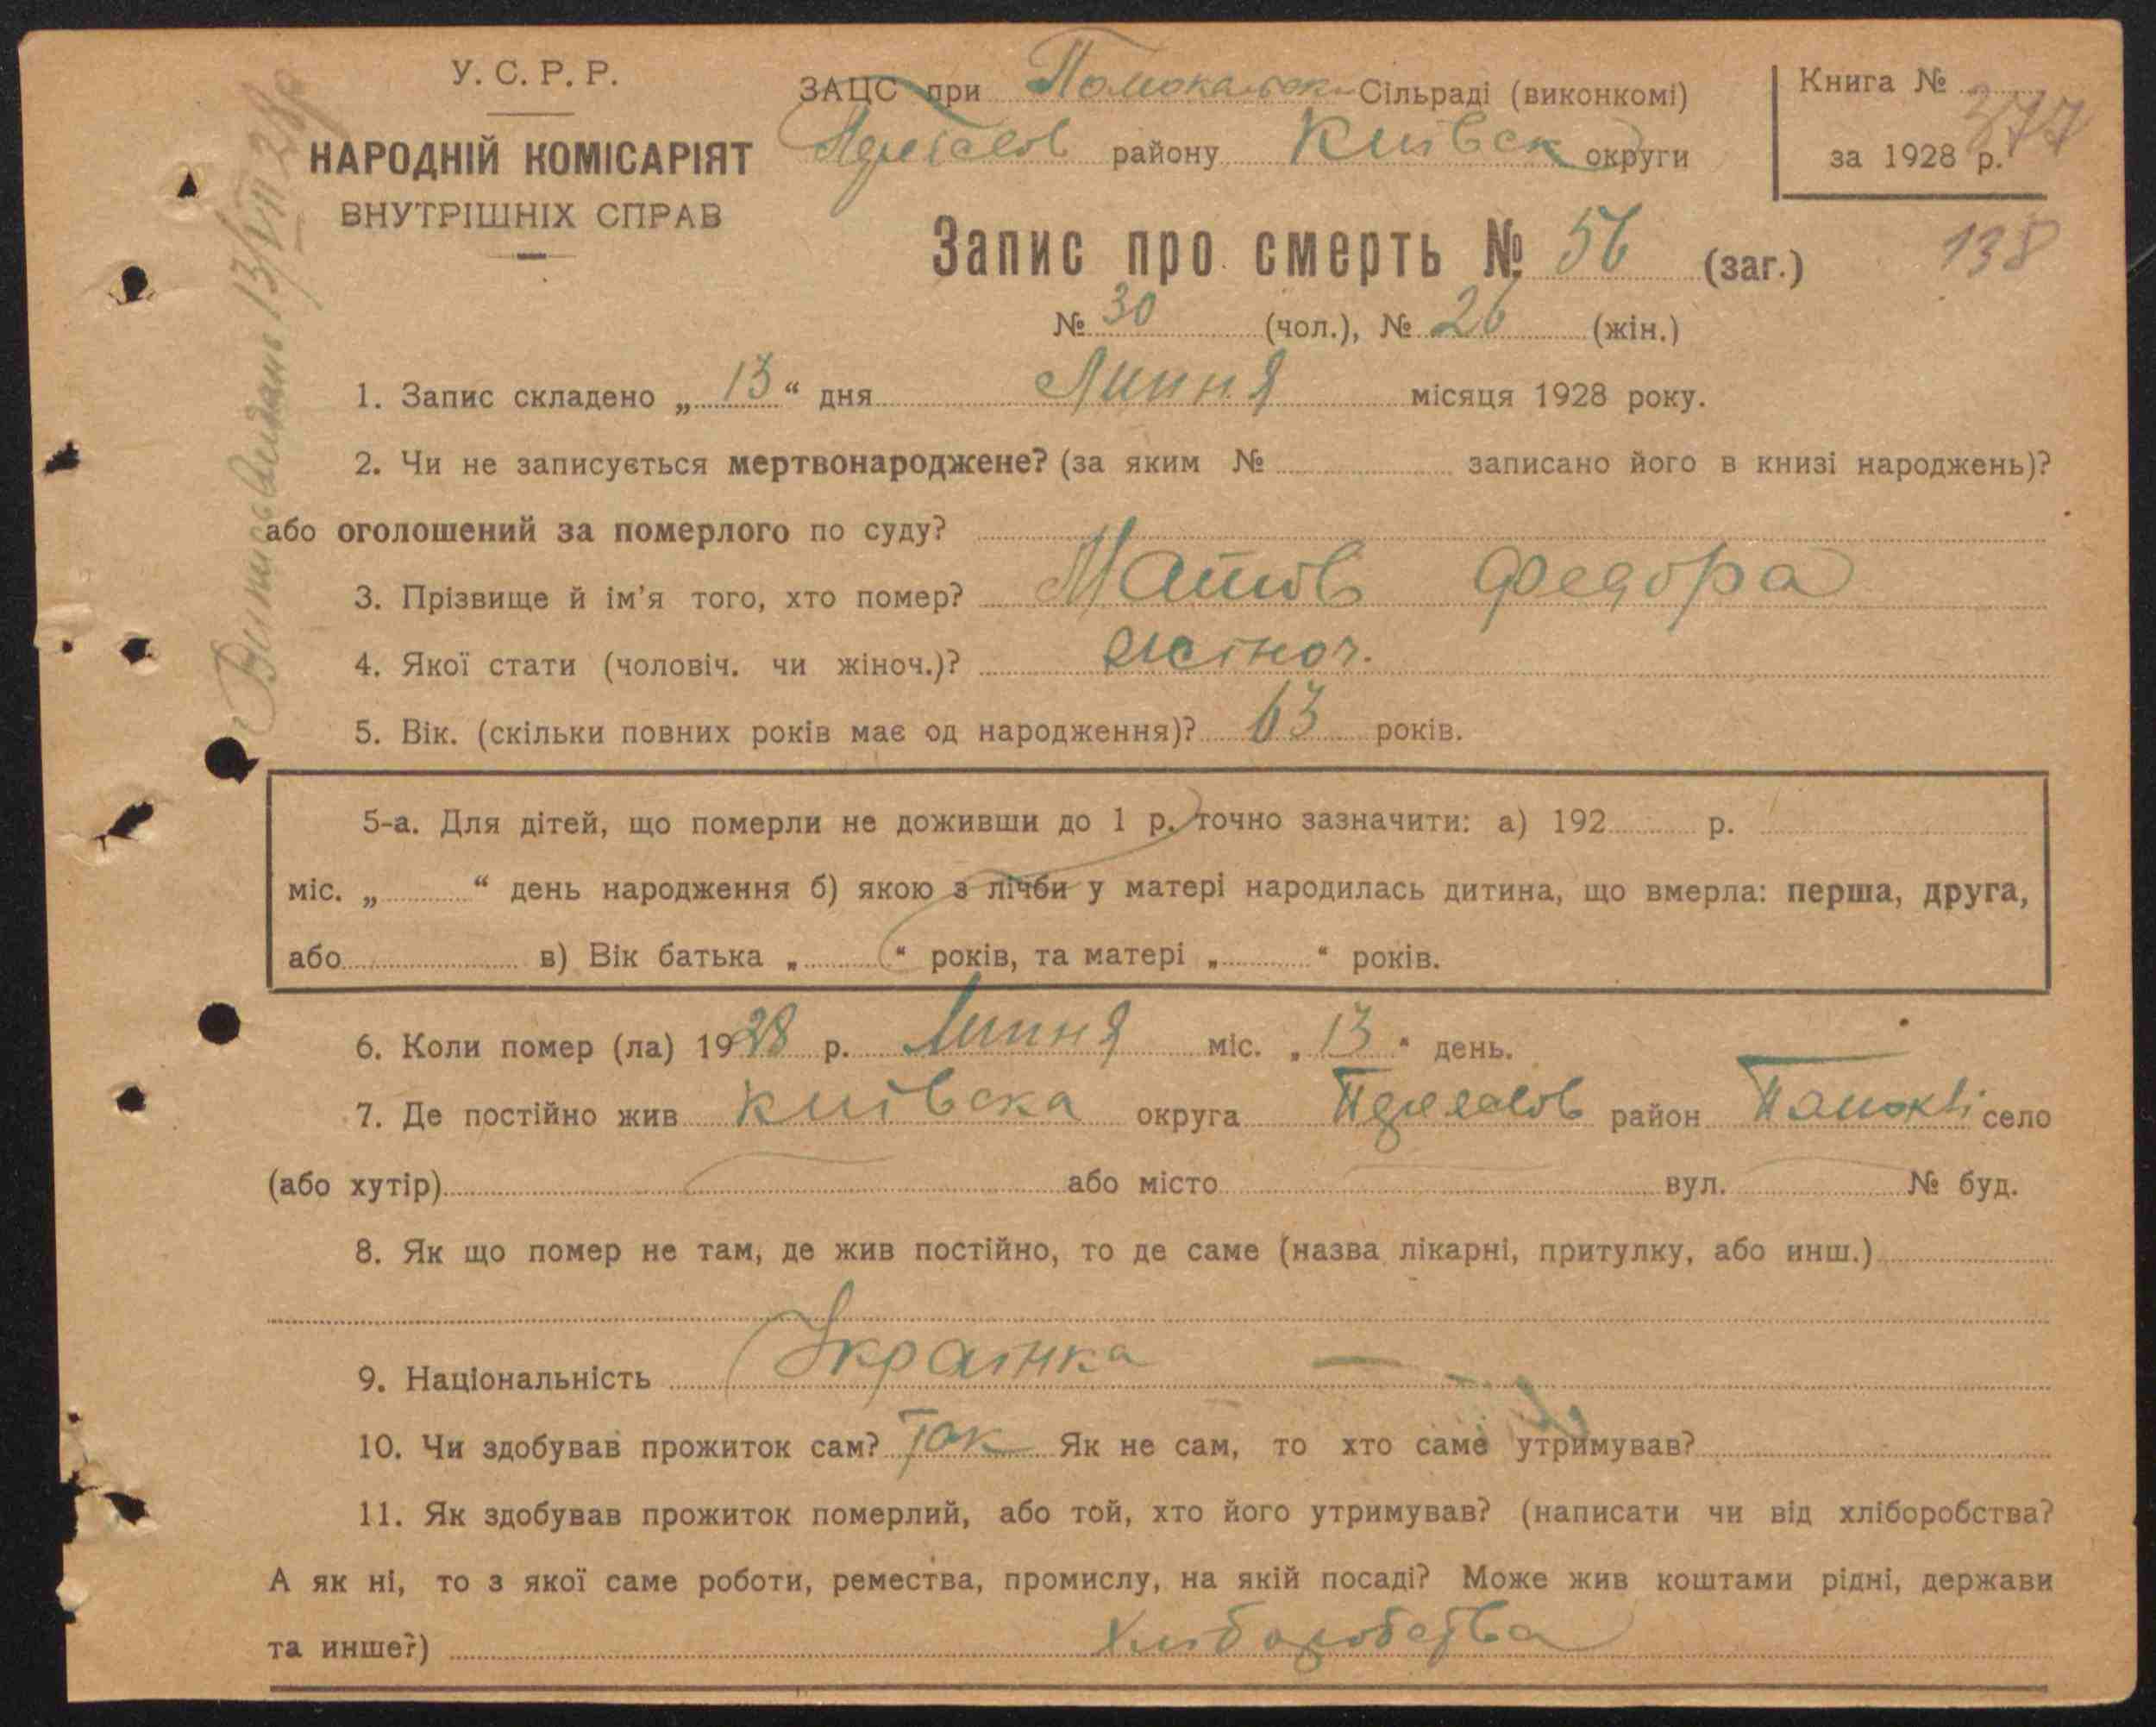 У. С. Р. Р.
НАРОДНІЙ КОМІСАРІЯТ
ВНУТРІШНІХ СПРАВ
ЗАЦС при Сільраді (виконкомі)
району Київск округи
Книга №
за 1928 р.
377
138
Запис про смерть № 56 (заг.)
№ 30 (чол.), № 26 (жін.)
13/VII 28р
1. Запис складено „ 13 “ дня Липня місяця 1928 року.
2. Чи не записується мертвонароджене? (за яким № записано його в книзі народжень)?
або оголошений за померлого по суду?
3. Прізвище й ім'я того, хто помер? Федора
4. Якої стати (чоловіч. чи жіноч.)? жіноч.
5. Вік. (скільки повних років має од народження)? 63 років.
5-а. Для дітей, що померли не доживши до 1 р. точно зазначити: а) 192 р.
міс. „ “ день народження б) якою з лічби у матері народилась дитина, що вмерла: перша, друга,
або в) Вік батька „ “ років, та матері „ “ років.
6. Коли помер (ла) 1928 р. Липня міс. „ 13 “ день.
7. Де постійно жив Київска округа район село
(або хутір) або місто вул. № буд.
8. Як що помер не там, де жив постійно, то де саме (назва лікарні, притулку, або инш.)
9. Національність Українка
10. Чи здобував прожиток сам? Так Як не сам, то хто саме утримував?
11. Як здобував прожиток померлий, або той, хто його утримував? (написати чи від хліборобства?
А як ні, то з якої саме роботи, ремества, промислу, на якій посаді? Може жив коштами рідні, держави
та инше?) Хліборобства